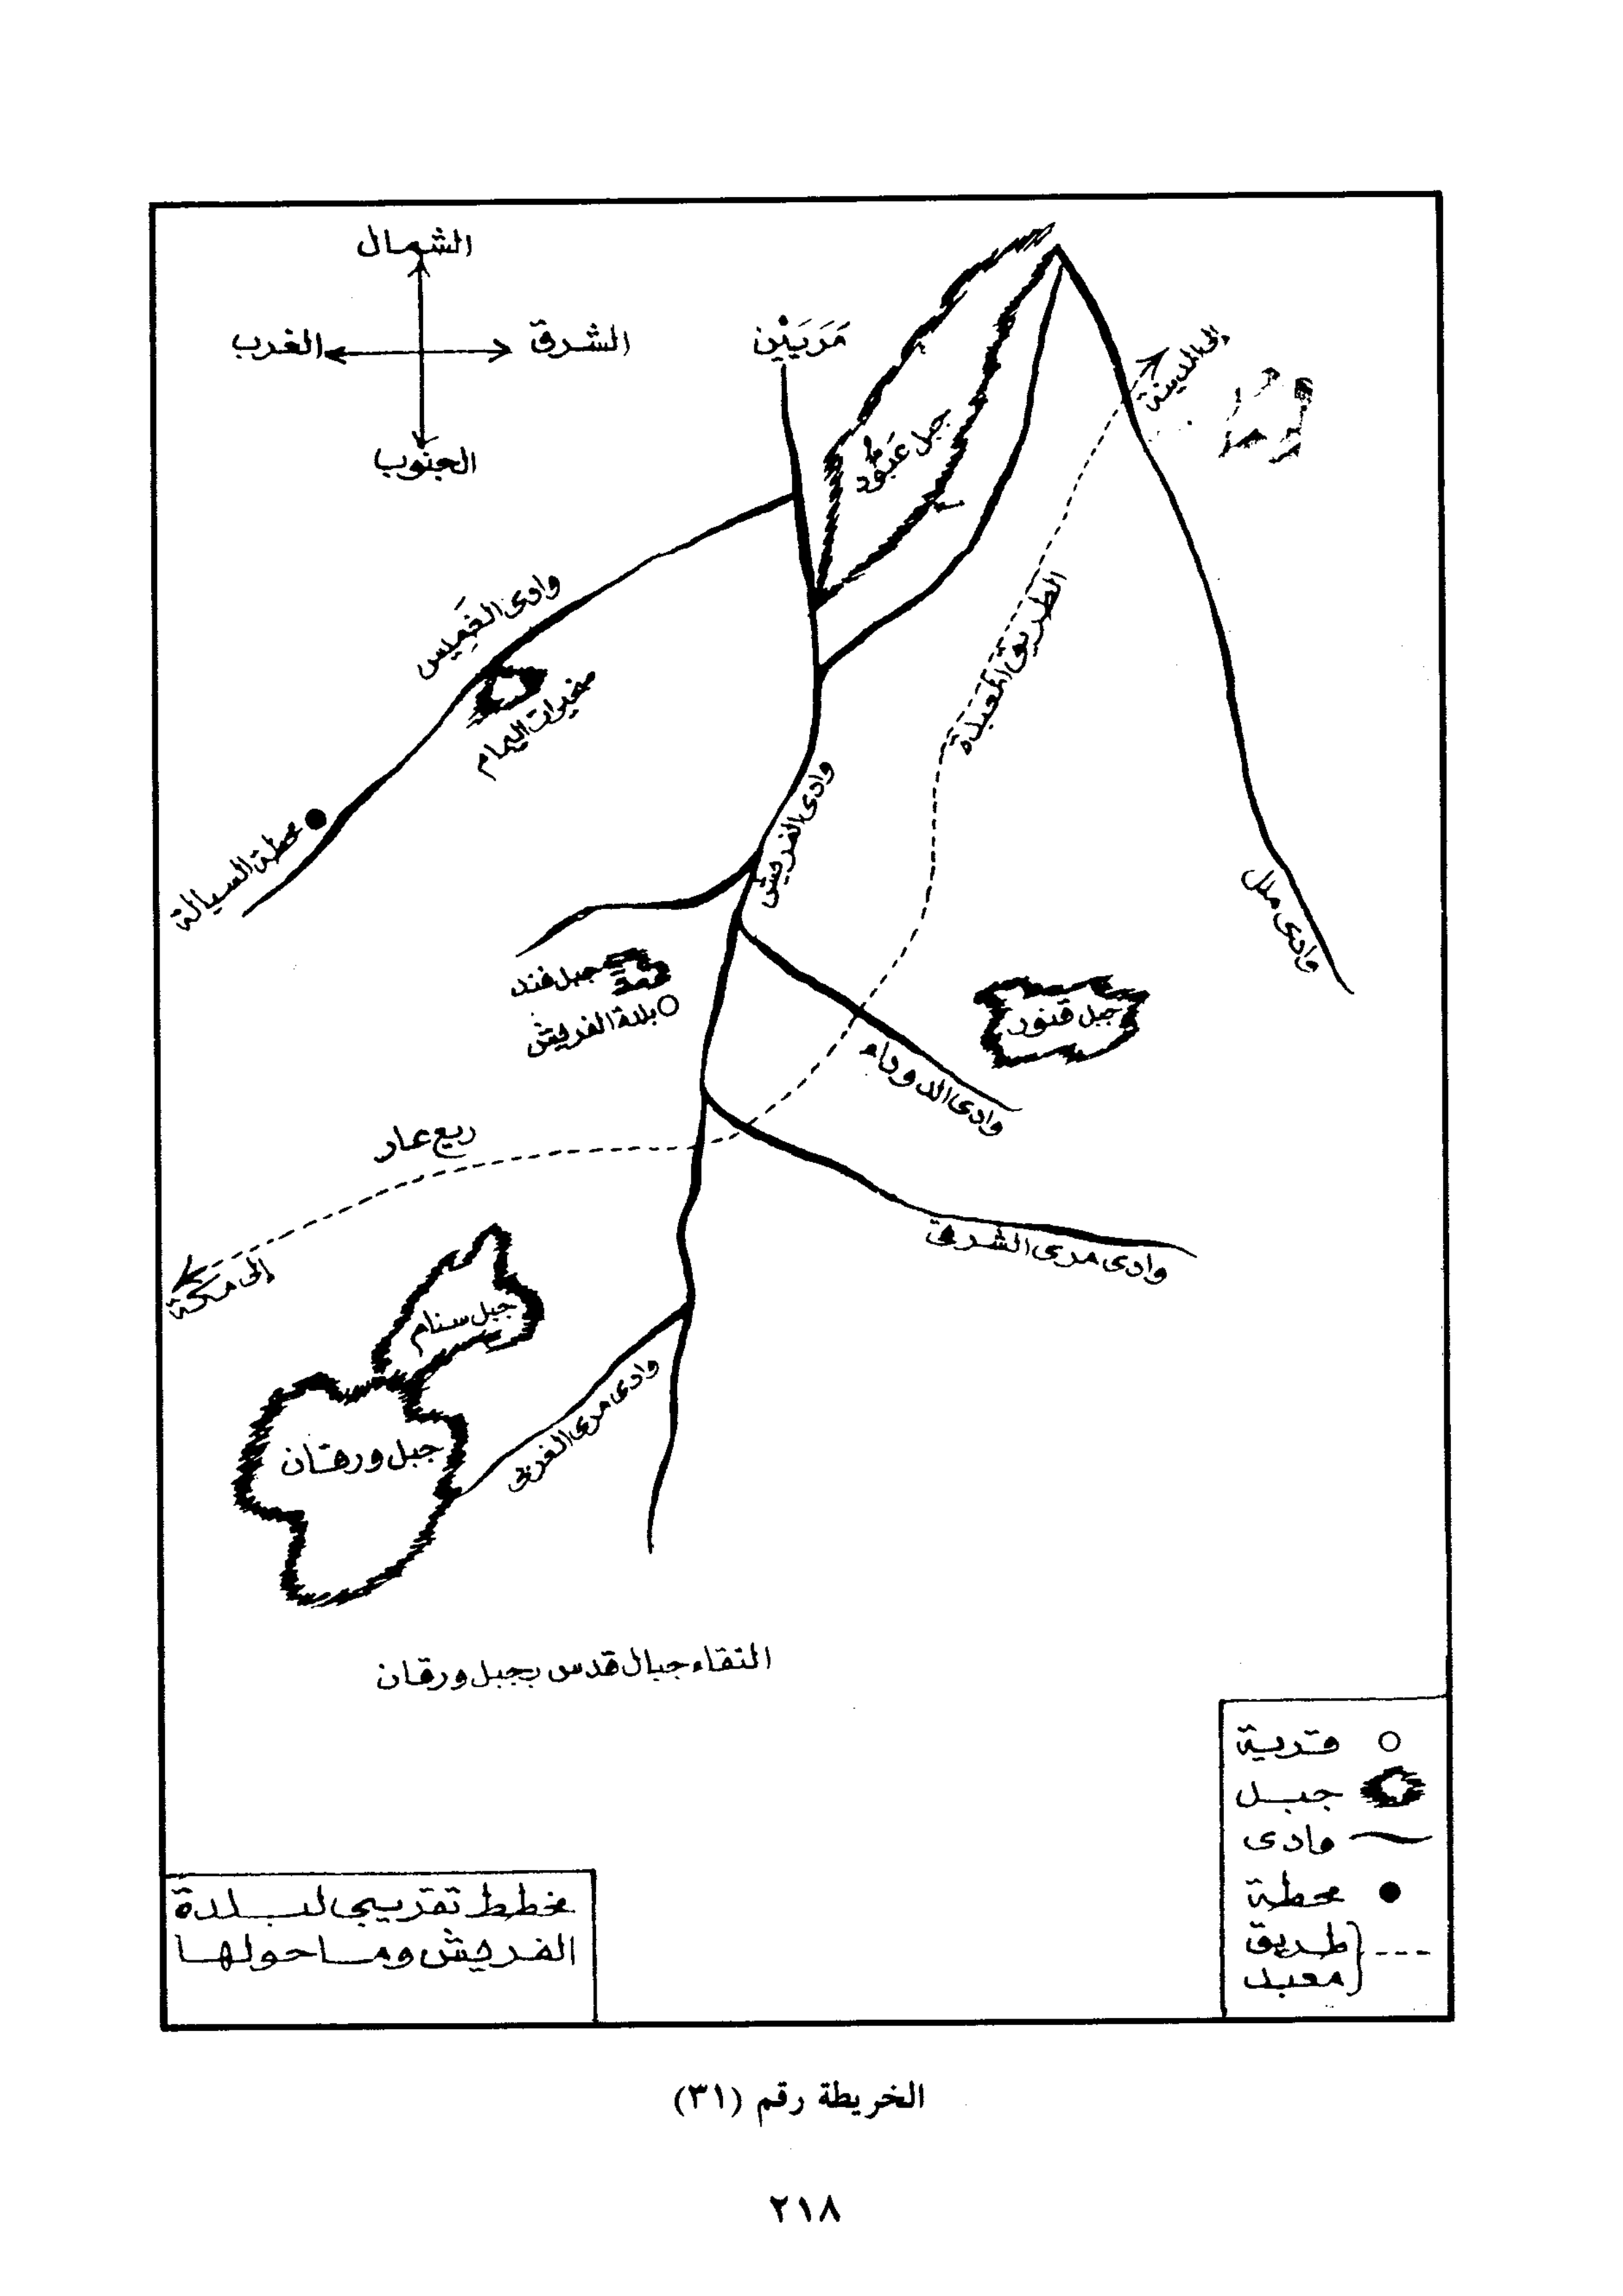 الشمال
الشرق
الغرب
الجنوب
مَرَيَيْن
جبل عَبُّود
إلى المدينة
الطريق المعبدة
وادى الغَمِيس
صخيرات اليمام
محطة السيالة
وادى الفريش
وادى ملل
جبل فند
بلدة الفريش
جبل قنور
وادى الدودا
ريع عار
وادى مرى الشرقى
إلى مكة
جبل سنام
وادى مرى الغربى
جبل ورقان
التقاء جبال قدس بجبل ورقان
قرية
جبل
وادى
محطة
طريق
معبد
مخطط تقريبى لبلدة
الفريش وما حولها
الخريطة رقم (٣١)
٢١٨